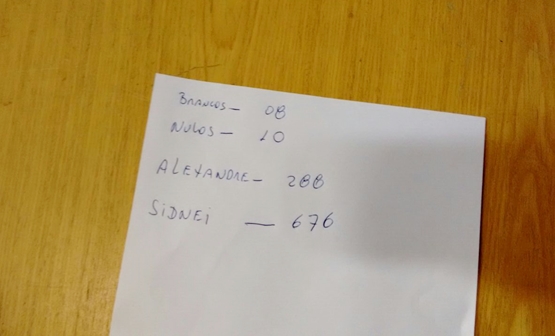 BRANCOS - 08
NULOS - 10
ALEXANDRE - 288
SIDNEI - 676